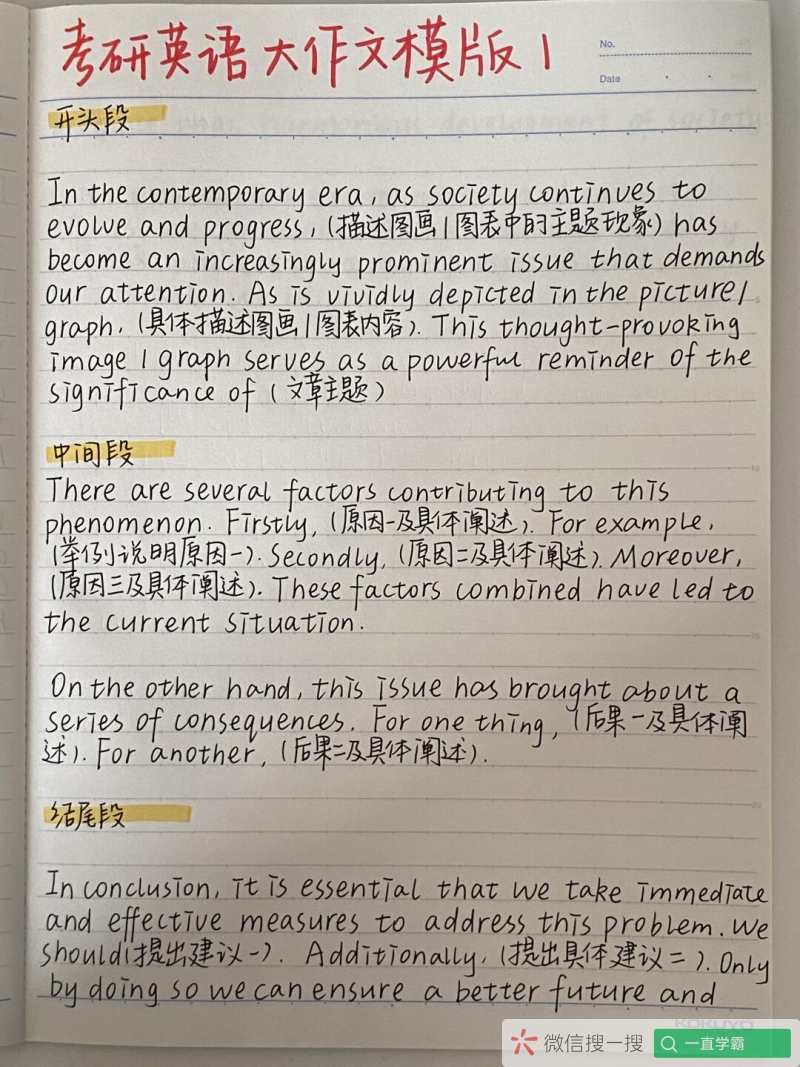 考研英语大作文模版1
No.
Date
开头段
In the contemporary era, as society continues to
evolve and progress, (描述图画/图表中的主题现象) has
become an increasingly prominent issue that demands
our attention. As is vividly depicted in the picture/
graph, (具体描述图画/图表内容). This thought-provoking
image / graph serves as a powerful reminder of the
significance of (文章主题)
中间段
There are several factors contributing to this
phenomenon. Firstly, (原因一及具体阐述). For example,
(举例说明原因一). Secondly, (原因二及具体阐述). Moreover,
(原因三及具体阐述). These factors combined have led to
the current situation.
On the other hand, this issue has brought about a
series of consequences. For one thing, (后果一及具体阐
述). For another, (后果二及具体阐述).
结尾段
In conclusion, it is essential that we take immediate
and effective measures to address this problem. We
should (提出建议一). Additionally, (提出具体建议二). Only
by doing so we can ensure a better future and
KOKUYO
微信搜一搜 一直学霸